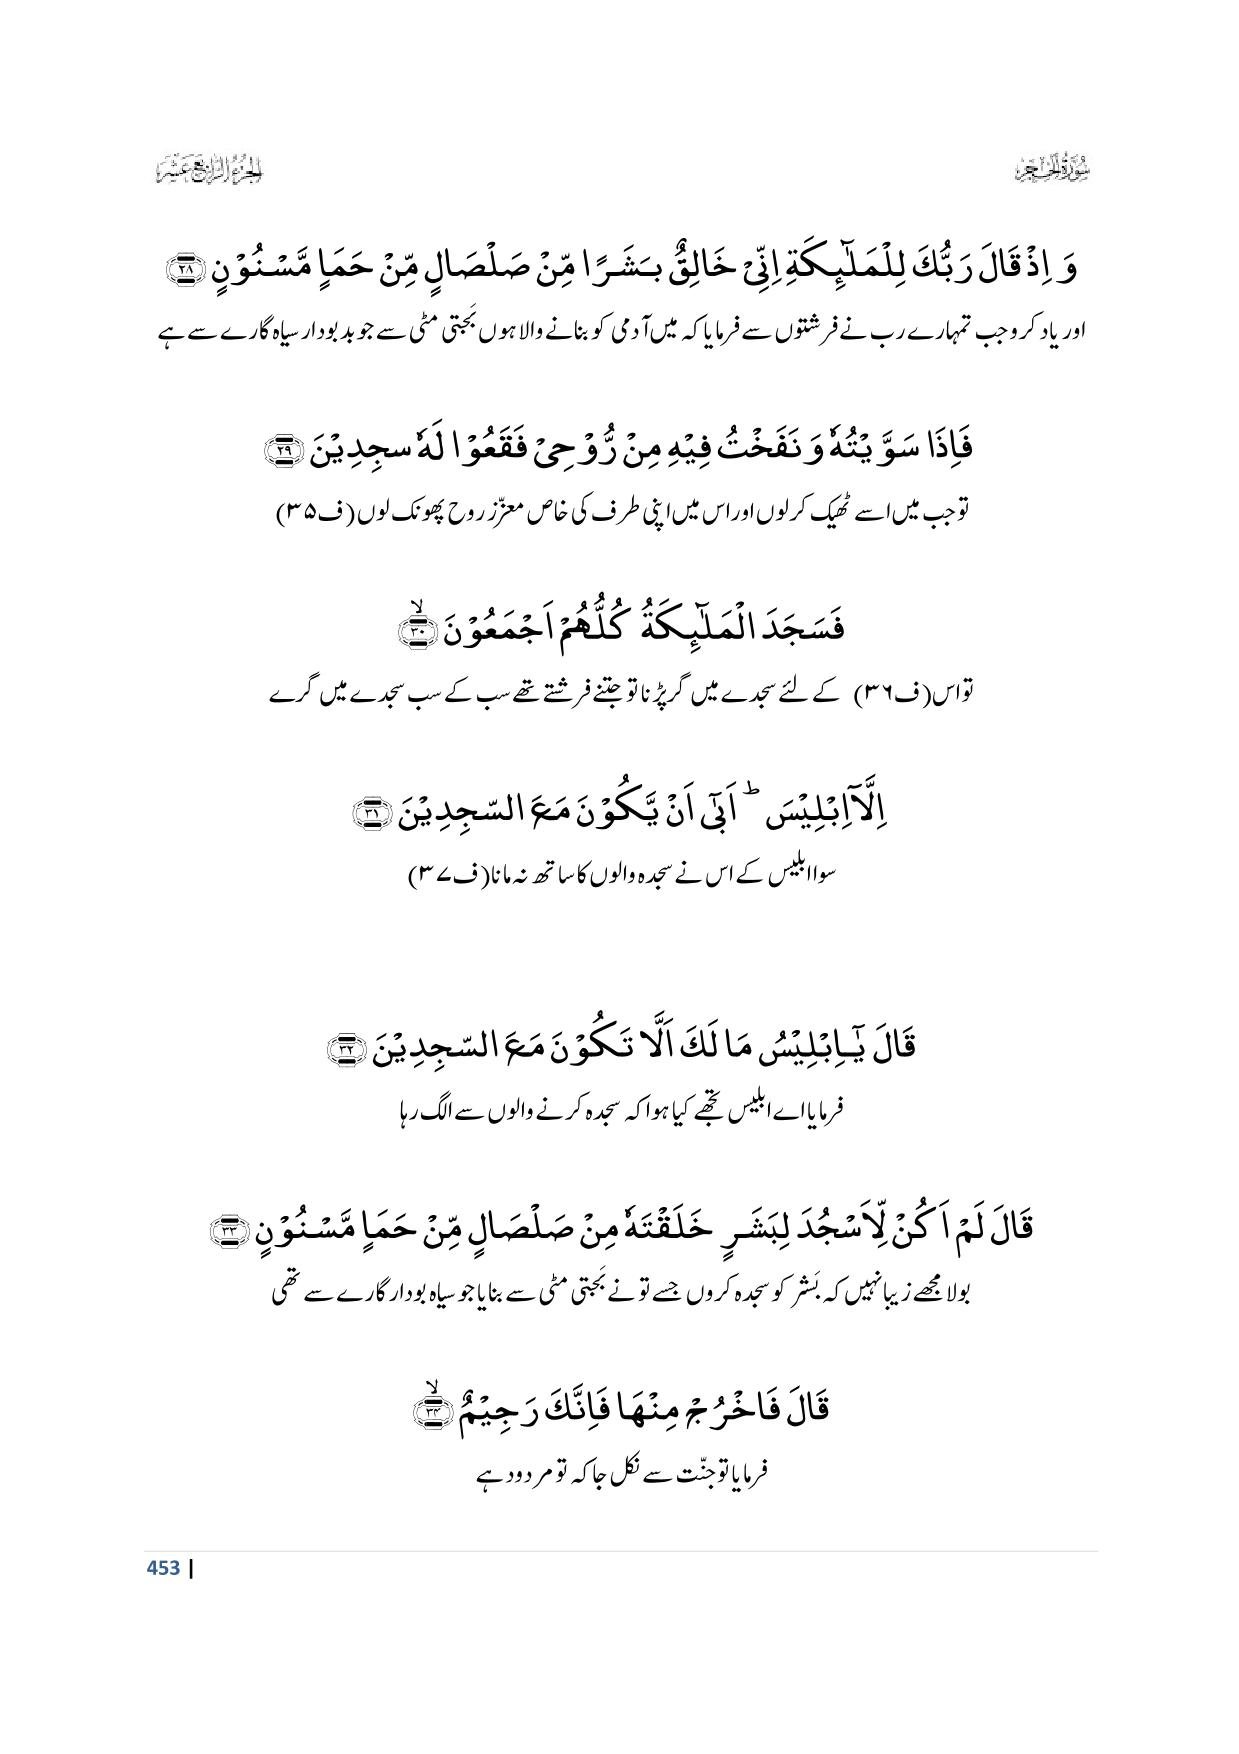 سُوْرَةُ الْحِجْرِ
الجزء الرابع عشر
وَ اِذْ قَالَ رَبُّكَ لِلْمَلٰٓئِكَةِ اِنِّیْ خَالِقٌۢ بَشَرًا مِّنْ صَلْصَالٍ مِّنْ حَمَاٍ مَّسْنُوْنٍ ﴿۲۸﴾
اور یاد کرو جب تمہارے رب نے فرشتوں سے فرمایا کہ میں آدمی کو بنانے والا ہوں بَجتی مٹی سے جو بدبودار سیاہ گارے سے ہے
فَاِذَا سَوَّیْتُهٗ وَ نَفَخْتُ فِیْهِ مِنْ رُّوْحِیْ فَقَعُوْا لَهٗ سجِدِیْنَ ﴿۲۹﴾
تو جب میں اسے ٹھیک کرلوں اور اس میں اپنی طرف کی خاص معزّز روح پھونک لوں (ف۳۵)
فَسَجَدَ الْمَلٰٓئِكَةُ كُلُّهُمْ اَجْمَعُوْنَ ﴿۳۰﴾ۙ
تو اس (ف۳۶) کے لئے سجدے میں گر پڑنا تو جتنے فرشتے تھے سب کے سب سجدے میں گرے
اِلَّاۤ اِبْلِیْسَ ؕ اَبٰۤی اَنْ یَّكُوْنَ مَعَ السّجِدِیْنَ ﴿۳۱﴾
سوا ابلیس کے اس نے سجدہ والوں کا ساتھ نہ مانا (ف۳۷)
قَالَ یٰۤـاِبْلِیْسُ مَا لَكَ اَلَّا تَكُوْنَ مَعَ السّجِدِیْنَ ﴿۳۲﴾
فرمایا اے ابلیس تجھے کیا ہوا کہ سجدہ کرنے والوں سے الگ رہا
قَالَ لَمْ اَكُنْ لِّاَسْجُدَ لِبَشَرٍ خَلَقْتَهٗ مِنْ صَلْصَالٍ مِّنْ حَمَاٍ مَّسْنُوْنٍ ﴿۳۳﴾
بولا مجھے زیبا نہیں کہ بَشر کو سجدہ کروں جسے تو نے بَجتی مٹی سے بنایا جو سیاہ بودار گارے سے تھی
قَالَ فَاخْرُجْ مِنْهَا فَاِنَّكَ رَجِیْمٌ ﴿۳۴﴾ۙ
فرمایا تو جنّت سے نکل جا کہ تو مردود ہے
453 |